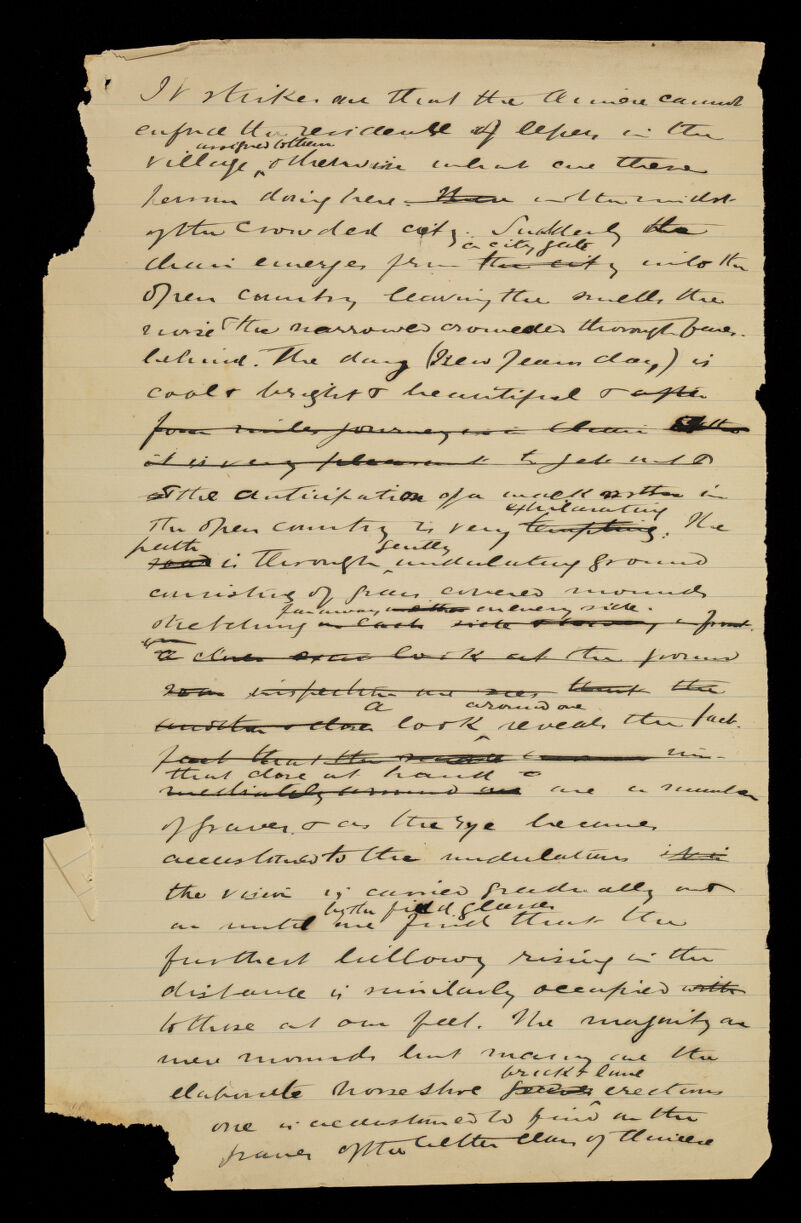 It strikes one that the Chinese cannot
enforce the residence of lepers in the
assigned to them
village, otherwise what are these
persons doing here in the midst
of the crowded city. Suddenly the
a city gate
chair emerges from the city into the
open country leaving the smells the
noise & the narrowed crowded thoroughfares
behind. The day (New Years day) is
cool & bright & beautiful & after
four miles journey in a chair
it is very pleasant to get out &
& the anticipation of a walk in
exhilarating
the open country is very tempting. The
path gently
road is through undulating ground
consisting of grass covered mounds
far away on every side.
stretching on each side & in front.
a closer look at the ground
inspection one sees that the
a around one
another & closer look reveals the fact
fact that the im-
that close at hand
mediately around are a number
of graves, & as the eye becomes
accustomed to the undulations it is
the vision is carried gradually out
by the field glasses
on until one find that the
furthest billowy rising in the
distance is similarly occupied with
to those at our feet. The majority are
mere mounds but many are the
brick & lime
elaborate horse shoe graves erections
one is accustomed to find on the
graves of the better class of Chinese